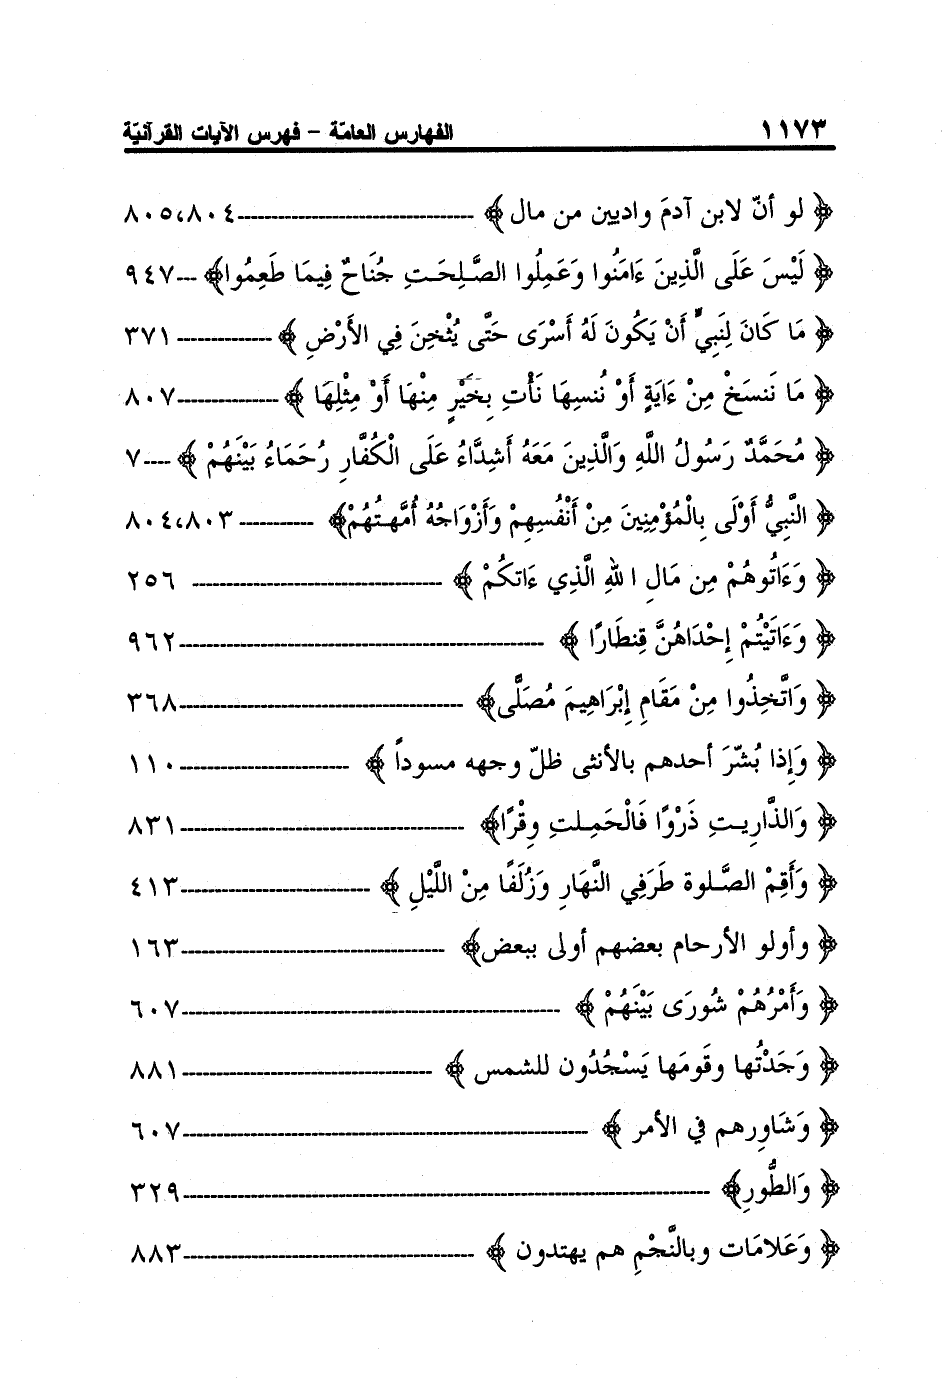 ١١٧٣ الفهارس العامّة - فهرس الآيات القرآنيّة
﴿ لو أنّ لابن آدمَ واديين من مال ﴾ ---------- ٨٠٥،٨٠٤
﴿ لَيْسَ عَلَى الَّذِينَ ءَامَنُوا وَعَمِلُوا الصَّـلِحَـتِ جُنَاحٌ فِيمَا طَعِمُوا﴾ --- ٩٤٧
﴿ مَا كَانَ لِنَبِيٍّ أَنْ يَكُونَ لَهُ أَسْرَى حَتَّى يُثْخِنَ فِي الأَرْضِ ﴾ ---------- ٣٧١
﴿ مَا نَنسَخْ مِنْ ءَايَةٍ أَوْ نُنسِهَا نَأْتِ بِخَيْرٍ مِنْهَا أَوْ مِثْلِهَا ﴾ ---------- ٨٠٧
﴿ مُحَمَّدٌ رَسُولُ اللَّهِ وَالَّذِينَ مَعَهُ أَشِدَّاءُ عَلَى الْكُفَّارِ رُحَمَاءُ بَيْنَهُمْ ﴾ ---- ٧
﴿ النَّبِيُّ أَوْلَى بِالْمُؤْمِنِينَ مِنْ أَنْفُسِهِمْ وَأَزْوَاجُهُ أُمَّهـتُهُمْ﴾ ---------- ٨٠٤،٨٠٣
﴿ وَءَاتُوهُمْ مِن مَالِ اللهِ الَّذِي ءَاتـكُمْ ﴾ ---------- ٢٥٦
﴿ وَءَاتَيْتُمْ إِحْدَاهُنَّ قِنطَارًا ﴾ ---------- ٩٦٢
﴿ وَاتَّخِذُوا مِنْ مَقَامِ إِبْرَاهِيمَ مُصَلًّى﴾ ---------- ٣٦٨
﴿ وَإِذا بُشّرَ أحدهم بالأنثى ظلّ وجهه مسوداً ﴾ ---------- ١١٠
﴿ وَالذَّارِيـتِ ذَرْوًا فَالْحَمِـلتِ وِقْرًا﴾ ---------- ٨٣١
﴿ وَأَقِمْ الصَّـلوة طَرَفِي النَّهَارِ وَزُلَفًا مِنْ اللَّيْلِ ﴾ ---------- ٤١٣
﴿ وأولو الأرحام بعضهم أولى ببعض﴾ ---------- ١٦٣
﴿ وَأَمْرُهُمْ شُورَى بَيْنَهُمْ ﴾ ---------- ٦٠٧
﴿ وَجَدْتُها وقَومَها يَسْجُدُون للشمس ﴾ ---------- ٨٨١
﴿ وَشَاوِرهم في الأمر ﴾ ---------- ٦٠٧
﴿ وَالطُّورِ﴾ ---------- ٣٢٩
﴿ وَعَلامَات وبالنَّجْمِ هم يهتدون ﴾ ---------- ٨٨٣